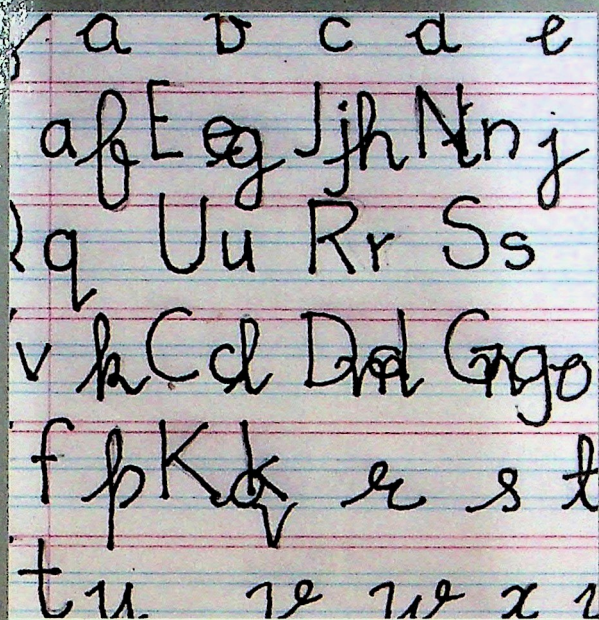 a b c d e
a f E e g J j h N n j
q U u R r S s
v k C c l D d G g o
f p K k r s t
t u v w x